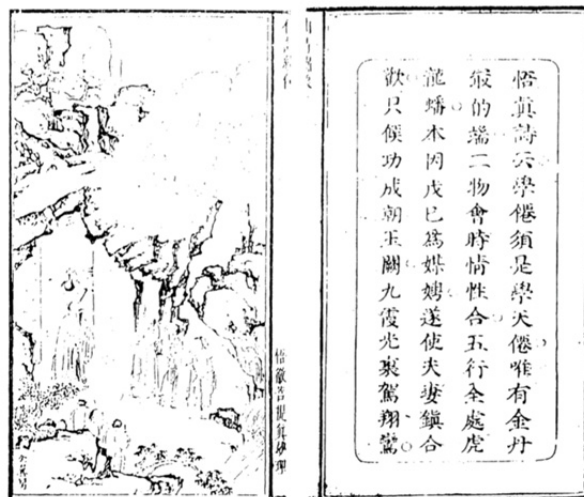 悟真詩云學僊須是學天僊唯有金丹
最的端二物會時情性合五行全處虎
龍蟠本因戊己爲媒娉遂使夫妻鎮合
歡只候功成朝玉闕九霞光裏駕翔鸞
悟徹菩提真妙理